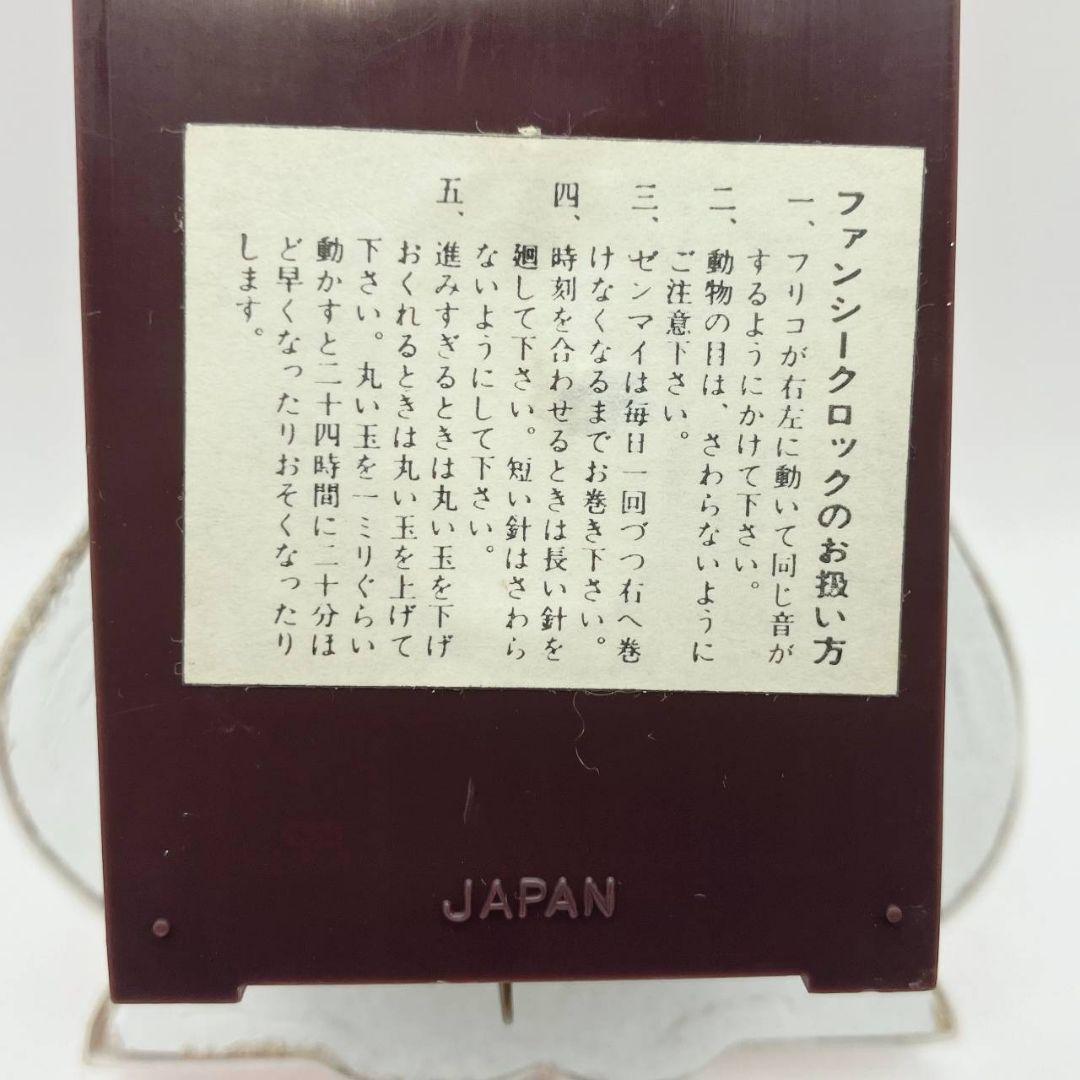 ファンシークロックのお扱い方
一、フリコが右左に動いて同じ音が
するようにかけて下さい。
二、動物の目は、さわらないように
ご注意下さい。
三、ゼンマイは毎日一回づつ右へ巻
けなくなるまでお巻き下さい。
四、時刻を合わせるときは長い針を
廻して下さい。短い針はさわら
ないようにして下さい。
五、進みすぎるときは丸い玉を下げ
おくれるときは丸い玉を上げて
下さい。丸い玉を一ミリぐらい
動かすと二十四時間に二十分ほ
ど早くなったりおそくなったり
します。
JAPAN